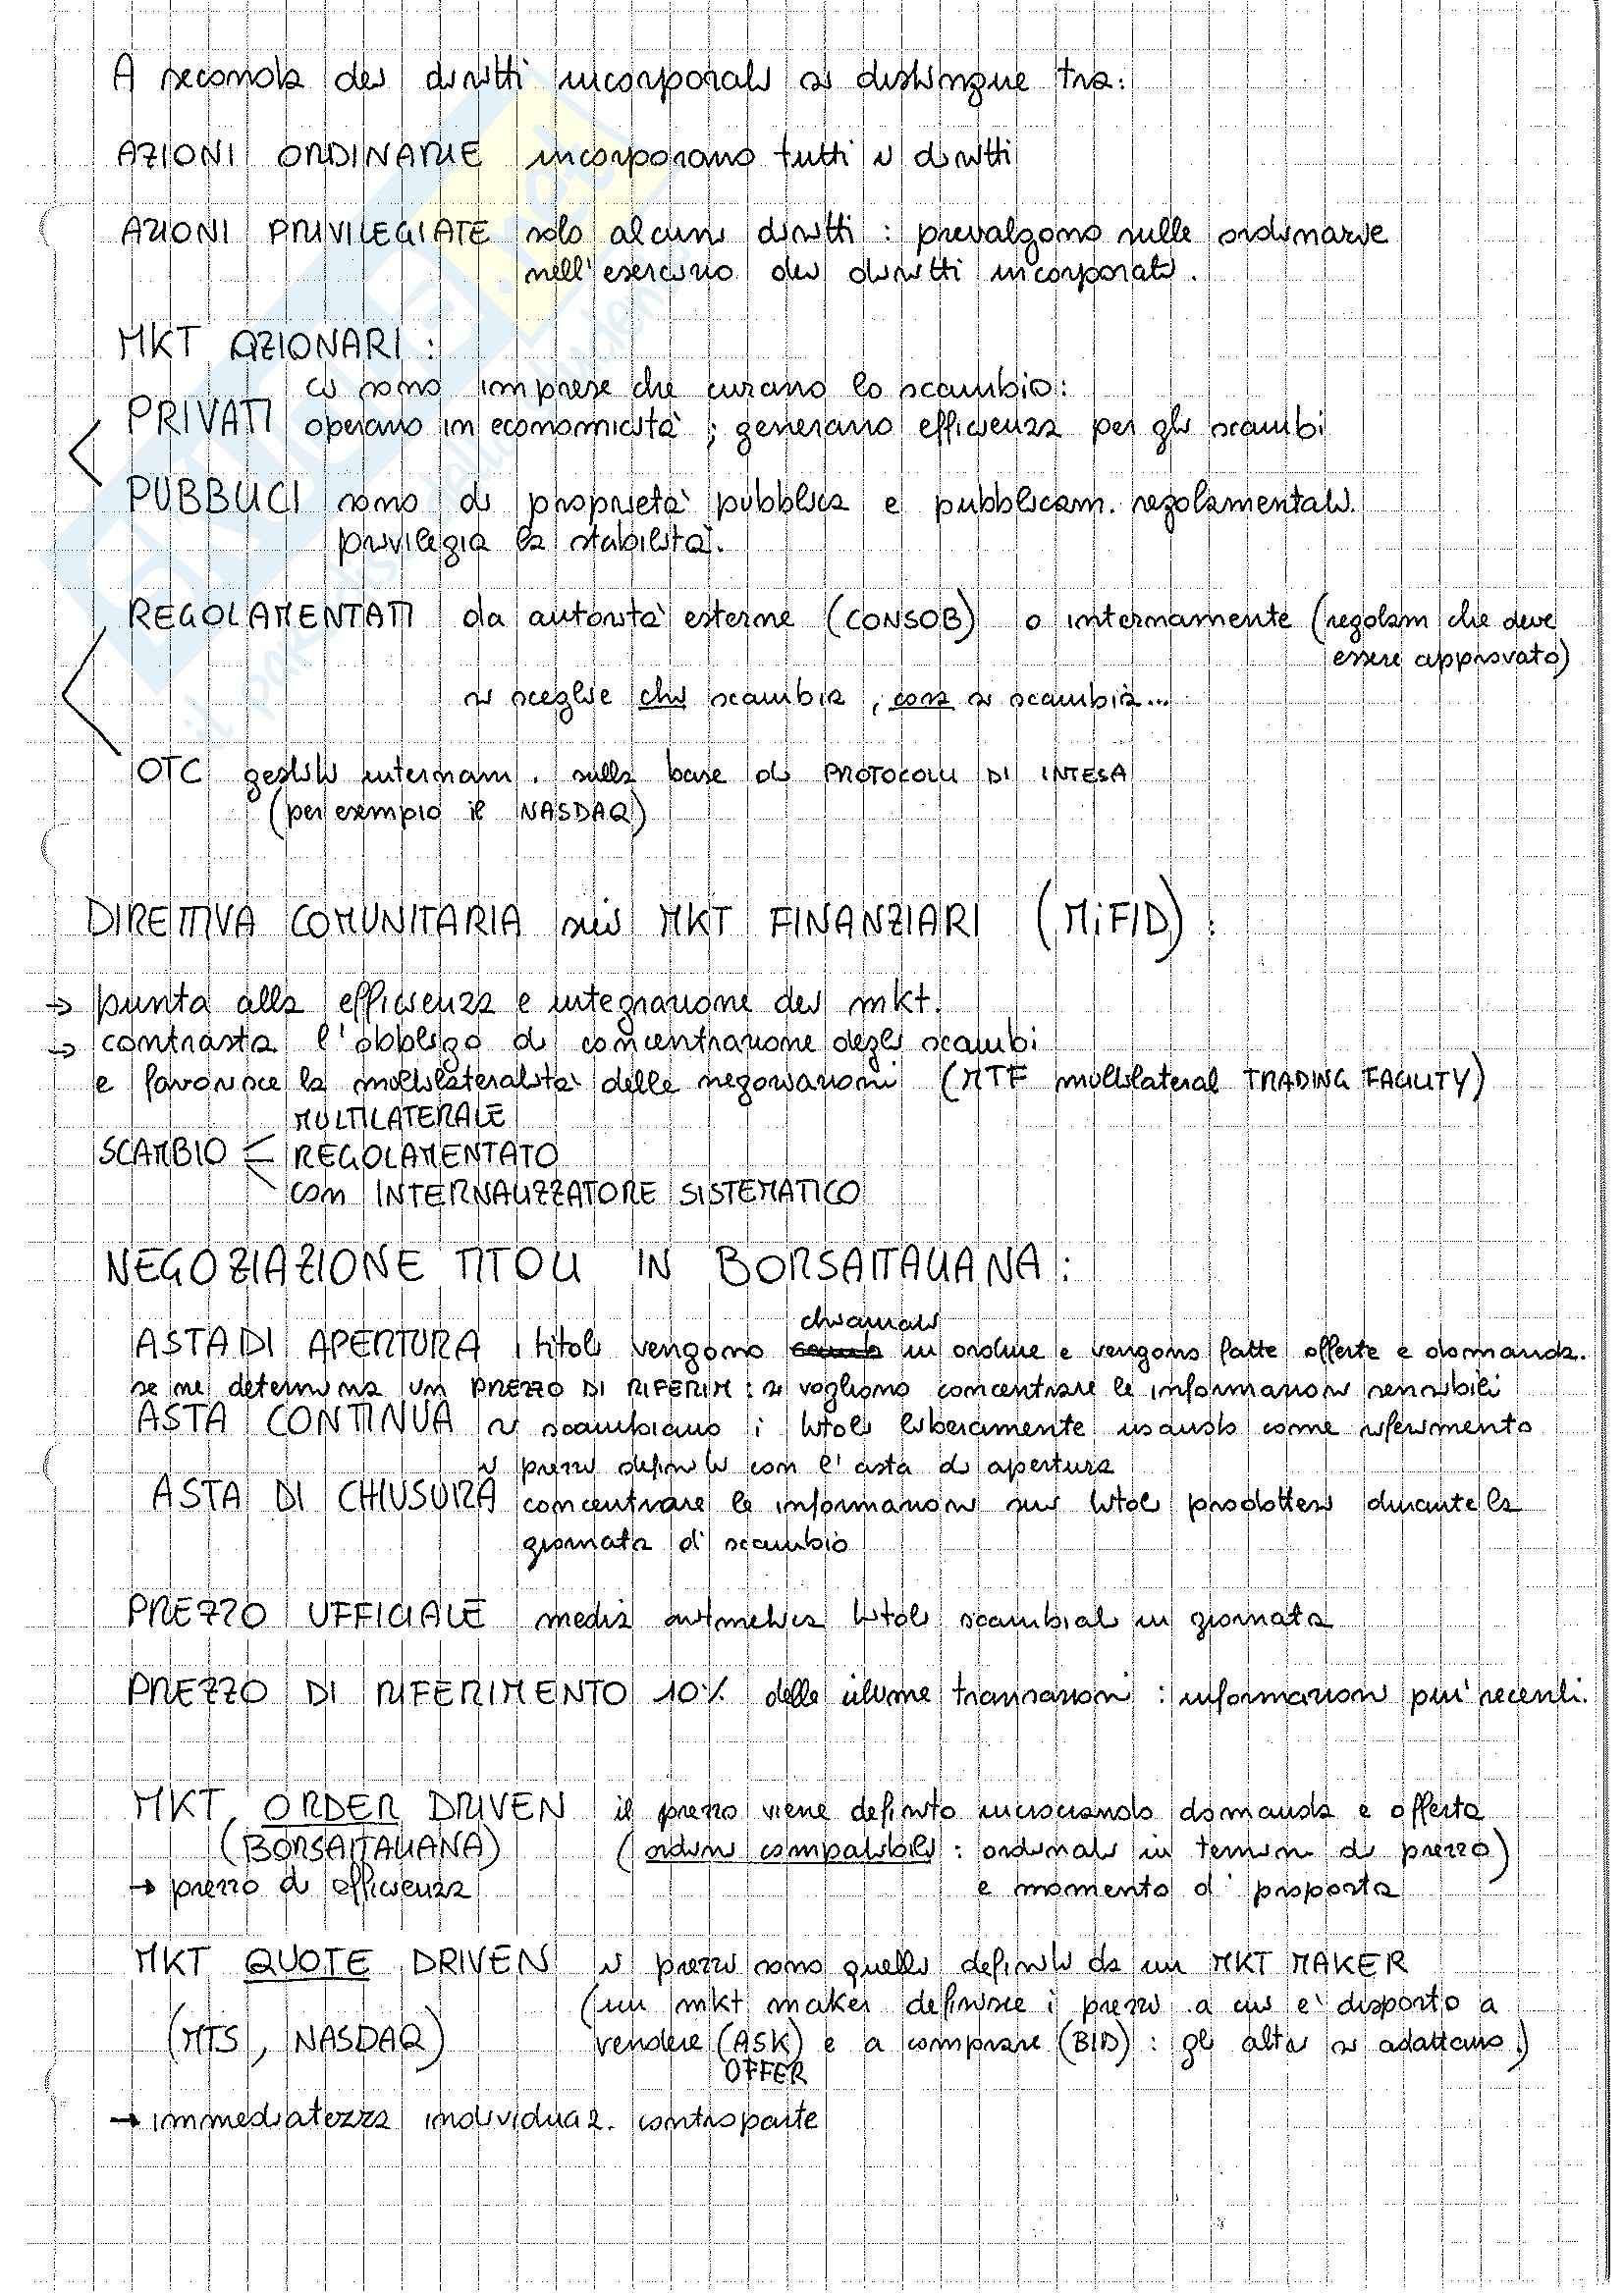 A seconda dei diritti incorporati si distingue tra:
AZIONI ORDINARIE incorporano tutti i diritti
AZIONI PRIVILEGIATE solo alcuni diritti : prevalgono sulle ordinarie
nell'esercizio dei diritti incorporati.
MKT AZIONARI :
ci sono imprese che curano lo scambio:
PRIVATI operano in economicità ; generano efficienza per gli scambi
PUBBLICI sono di proprietà pubblica e pubblicam. regolamentati.
privilegia la stabilità.
REGOLAMENTATI da autorità esterne (CONSOB) o internamente (regolam che deve
essere approvato)
si sceglie chi scambia, cosa si scambia...
OTC gestiti internam. sulla base di PROTOCOLLI DI INTESA
(per esempio il NASDAQ)
DIRETTIVA COMUNITARIA sui MKT FINANZIARI (MiFID) :
→ punta alla efficienza e integrazione dei mkt.
→ contrasta l'obbligo di concentrazione degli scambi
e favorisce la multilateralità delle negoziazioni (MTF multilateral TRADING FACILITY)
MULTILATERALE
SCAMBIO REGOLAMENTATO
con INTERNALIZZATORE SISTEMATICO
NEGOZIAZIONE TITOLI IN BORSAITALIANA :
chiamati
ASTA DI APERTURA I titoli vengono in ordine e vengono fatte offerte e domanda.
se ne determina un PREZZO DI RIFERIM : si vogliono concentrare le informazioni sensibili
ASTA CONTINUA si scambiano i titoli liberamente usando come riferimento
i prezzi definiti con l'asta di apertura
ASTA DI CHIUSURA concentrare le informazioni sui titoli prodottesi durante la
giornata di scambio
PREZZO UFFICIALE media aritmetica titoli scambiati in giornata
PREZZO DI RIFERIMENTO 10% delle ultime transazioni : informazioni piu' recenti.
MKT ORDER DRIVEN il prezzo viene definito incrociando domanda e offerta
(BORSAITALIANA) (ordini compatibili : ordinati in termini di prezzo)
→ prezzo di efficienza e momento di proposta
MKT QUOTE DRIVEN i prezzi sono quelli definiti da un MKT MAKER
(un mkt maker definisce i prezzi a cui e' disposto a
(MTS, NASDAQ) vendere (ASK) e a comprare (BID) : gli altri si adattano.)
OFFER
→ immediatezza individuaz. controparte